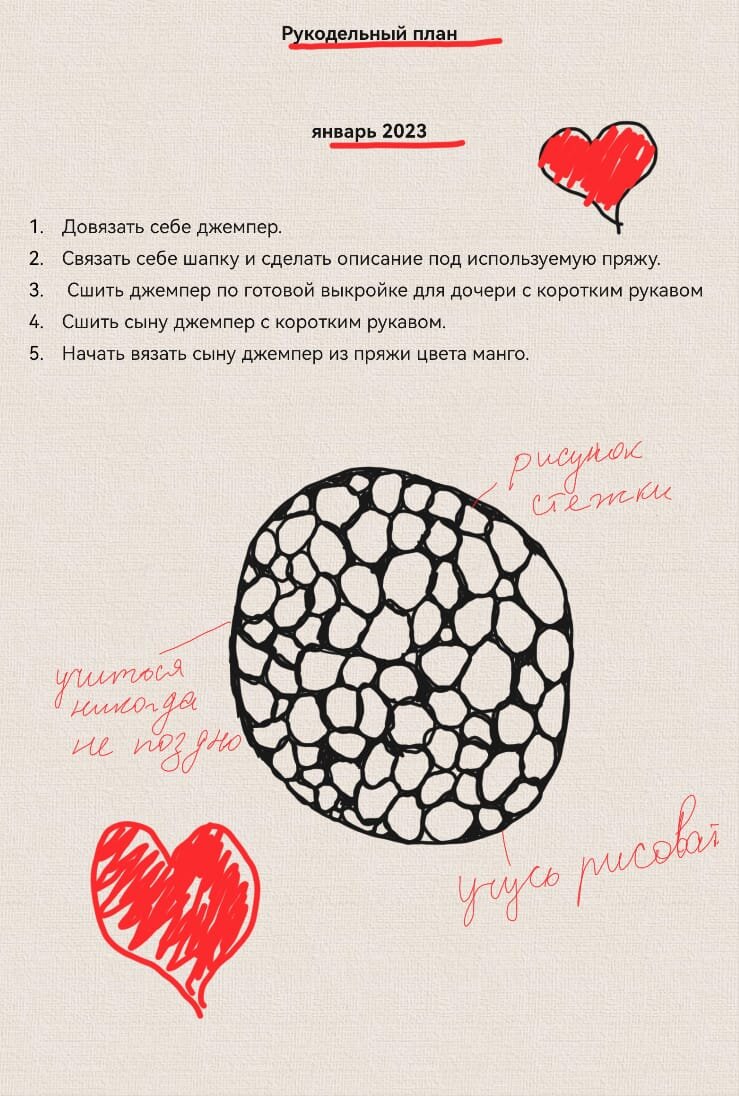 Рукодельный план
январь 2023
1. Довязать себе джемпер.
2. Связать себе шапку и сделать описание под используемую пряжу.
3. Сшить джемпер по готовой выкройке для дочери с коротким рукавом
4. Сшить сыну джемпер с коротким рукавом.
5. Начать вязать сыну джемпер из пряжи цвета манго.
рисунок
стежки
учиться
никогда
не поздно
учусь рисоват